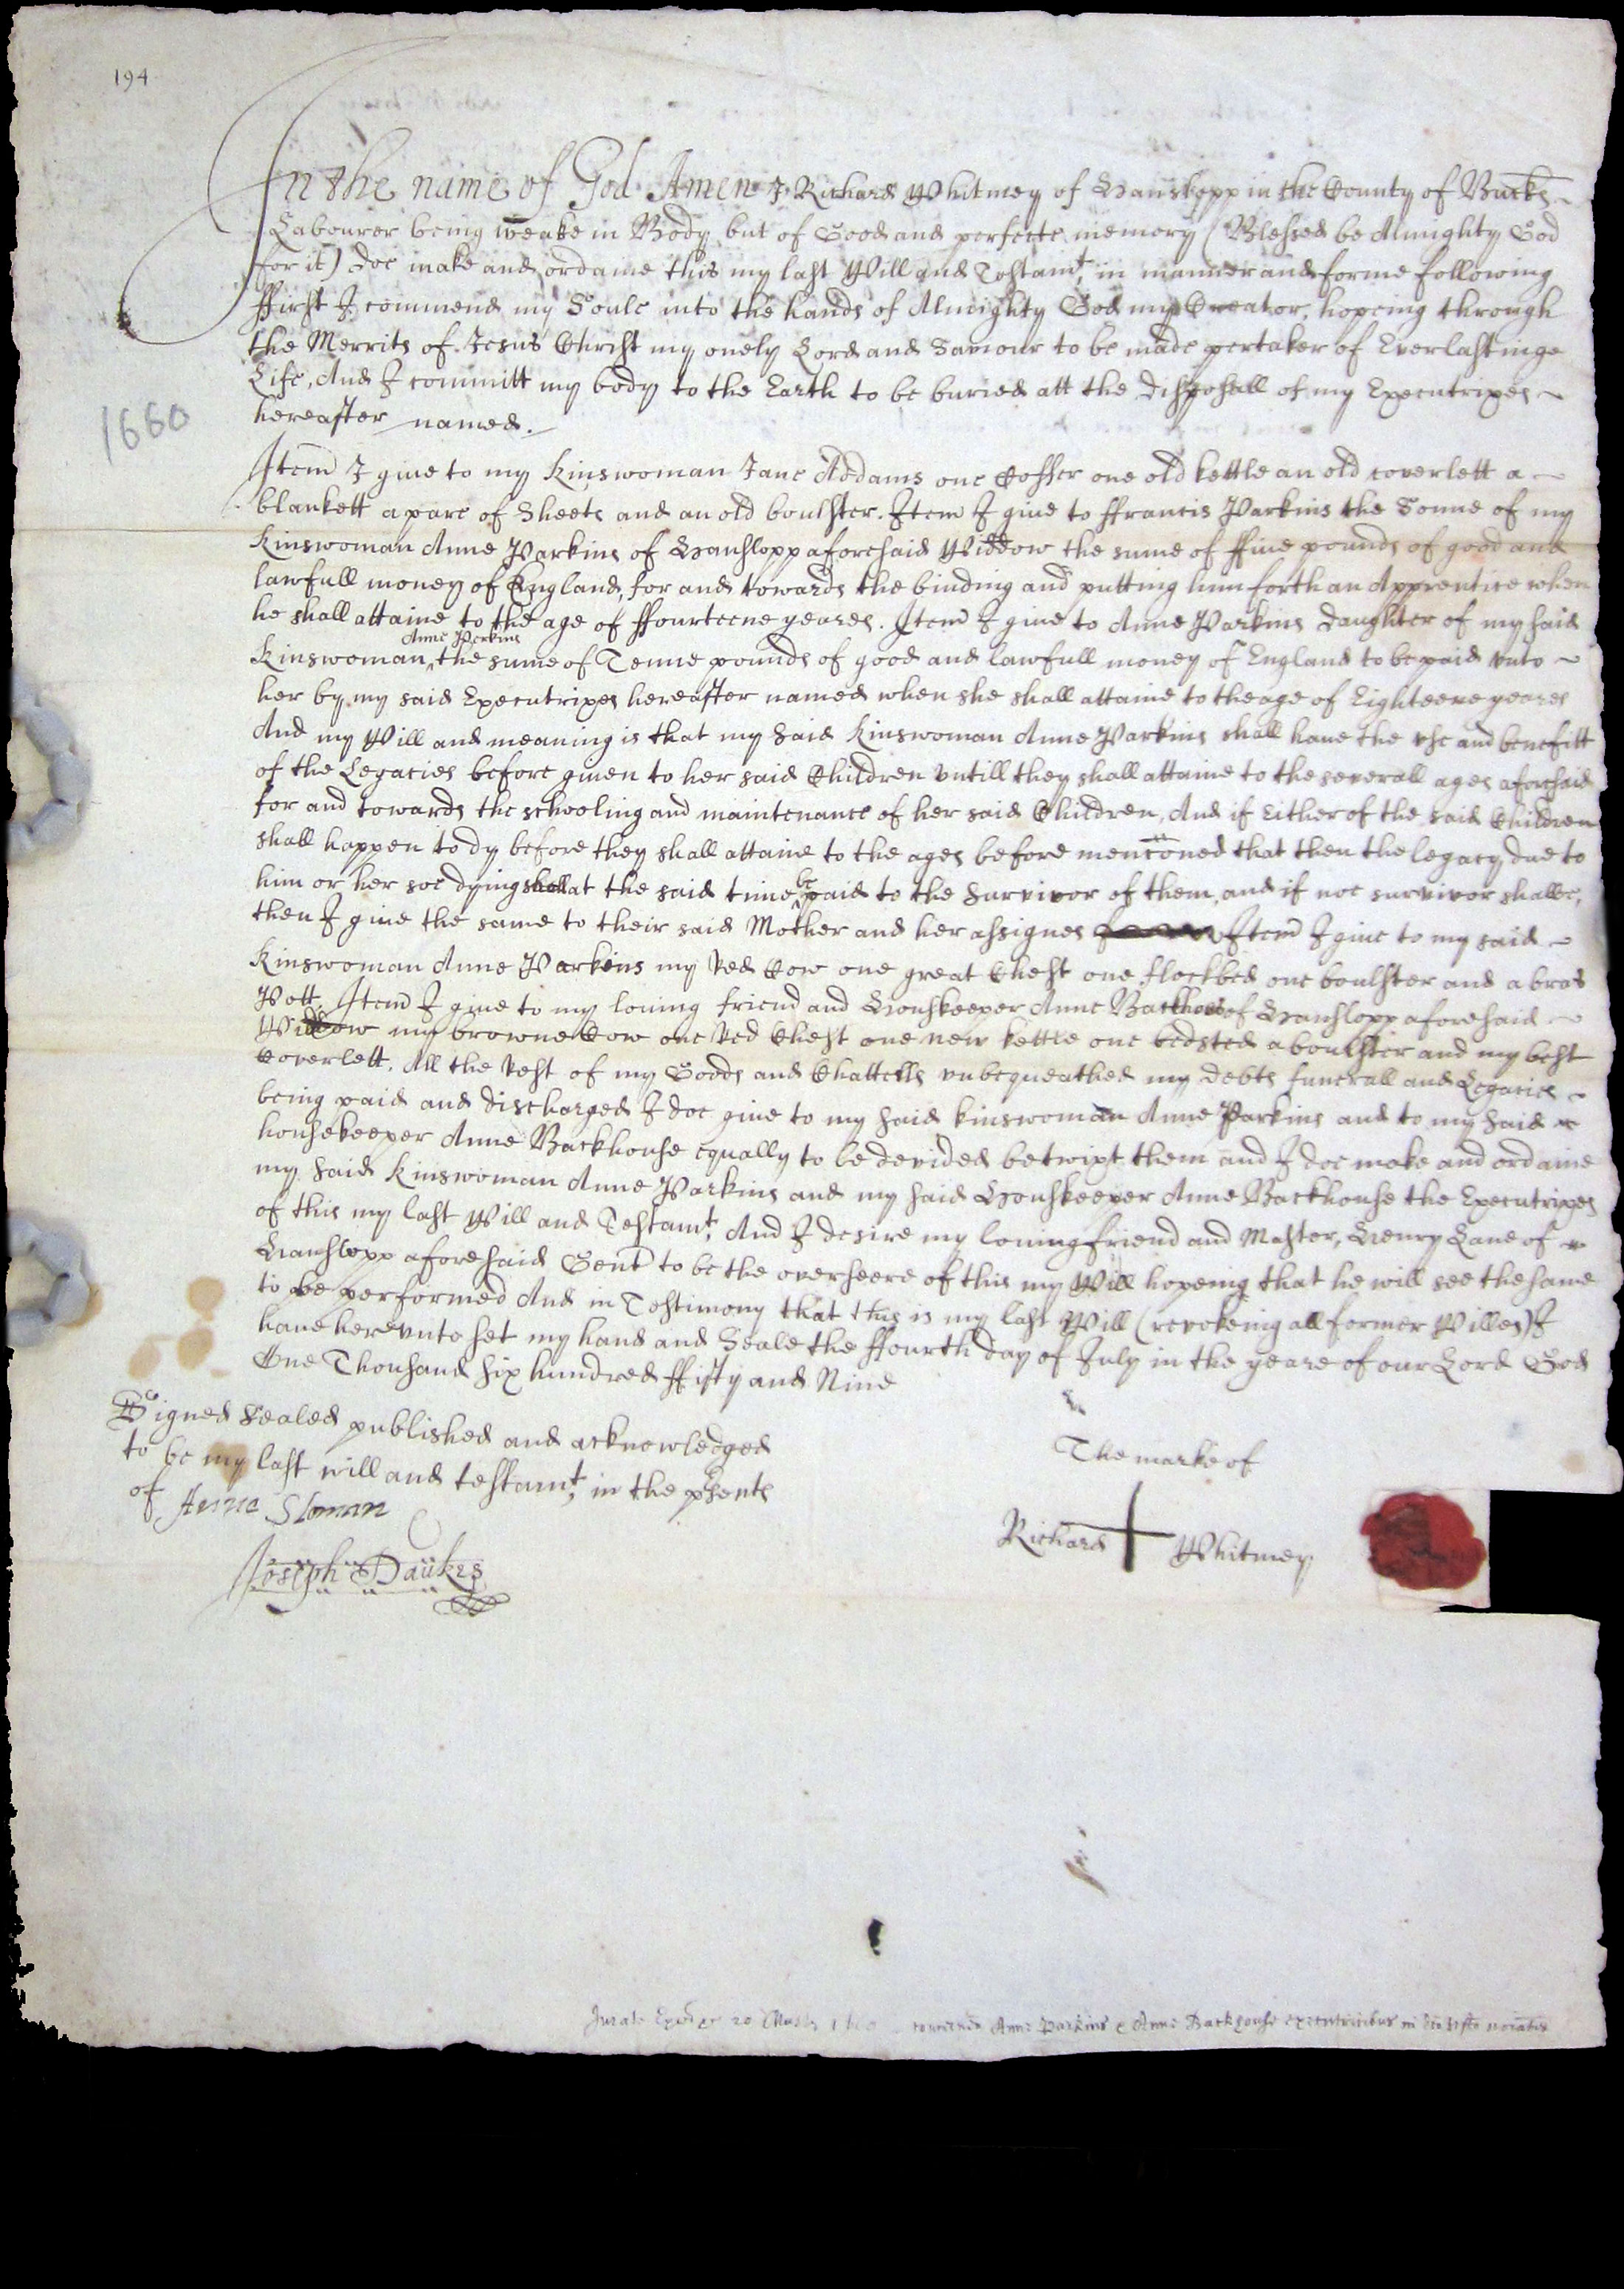 194
In the name of God Amen I Richard Whitmey of Hanslopp in the County of Bucks
Labourer being weake in Body but of Good and perfecte memory (Blessed be Almighty God
for it) doe make and ordaine this my last Will and Testamt, in manner and forme following
ffirst I commend my Soule into the hands of Almighty God my Creator, hopeing through
the Merrits of Jesus Christ my onely Lord and Saviour to be made pertaker of Everlastinge
Life, And I committ my body to the Earth to be buried att the disposall of my Executrixes
hereafter named.
1660
Item I giue to my Kinswoman Jane Addams one Coffer one old kettle an old coverlett a
blankett a pare of Sheets and an old boulster. Item I giue to ffrancis Parkins the Sonne of my
Kinswoman Anne Parkins of Hanslopp aforesaid Widdow the sume of ffiue pounds of good and
lawfull money of England, for and towards the binding and putting him forth an Apprentice when
he shall attaine to the age of ffourteene yeares. Item I giue to Anne Parkins daughter of my said
Anne Perkins
Kinswoman, the sume of Tenne pounds of good and lawfull money of England to be paid vnto
her by my said Executrixes hereafter named when she shall attaine to the age of Eighteene yeares
And my Will and meaning is that my said Kinswoman Anne Parkins shall haue the vse and benefitt
of the Legacies before giuen to her said Children vntill they shall attaine to the severall ages aforesaid
for and towards the schooling and maintenance of her said Children, And if Either of the said Children
shall happen to dy before they shall attaine to the ages before menconed that then the legacy due to
him or her soe dying shall at the said time be paid to the Survivor of them, and if noe survivor shalbe,
then I giue the same to their said Mother and her assignes Item I giue to my said
Kinswoman Anne Parkins my Red Cow one great Chest one flockbed one boulster and a bras
Pott. Item I giue to my louing friend and Houskeeper Anne Backhous of Hanslopp aforesaid
Widdow my browne Cow one Red Chest one new kettle one bedsted a boulster and my best
Coverlett. All the Rest of my Goods and Chattells vnbequeathed my debts funerall and Legacies
being paid and discharged I doe giue to my said kinswoman Anne Parkins and to my said
housekeeper Anne Backhouse equally to be devided betwixt them and I doe make and ordaine
my said Kinswoman Anne Parkins and my said Houskeeper Anne Backhouse the Executrixes
of this my last Will and Testamt, And I desire my louing friend and Master, Henry Lane of
Hanslopp aforesaid Gent to be the overseere of this my Will hopeing that he will see the same
to be performed And in Testimony that this is my last Will (revokeing all former Willes) I
haue herevnto set my hand and Seale the ffourth day of July in the yeare of our Lord God
One Thousand six hundred ffifty and Nine
Signed sealed published and acknowledged
to be my last will and testamt, in the psents
of Anne Sloman
Joseph Daukes
The marke of
Richard Whitmey
Jurat 20 Anne Parkins & Anne Backhouse executricibus in